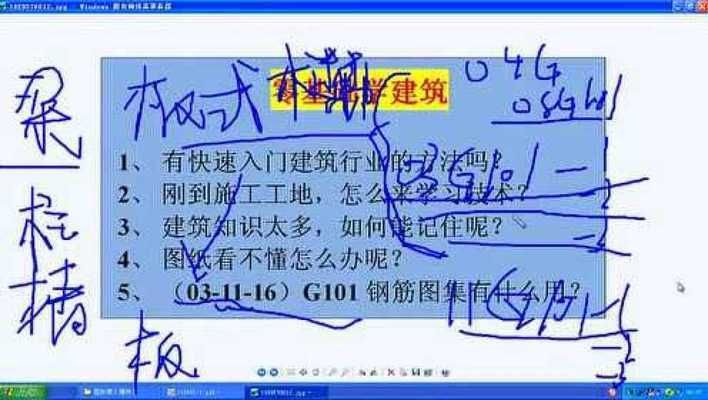 Windows
零基础学建筑
1、有快速入门建筑行业的方法吗？
2、刚到施工工地，怎么来学习技术？
3、建筑知识太多，如何能记住呢？
4、图纸看不懂怎么办呢？
5、（03-11-16）G101 钢筋图集有什么用？
梁
柱
墙
板
板式
04G
03G101-1
-2
-3
11G101-1
-2
-3